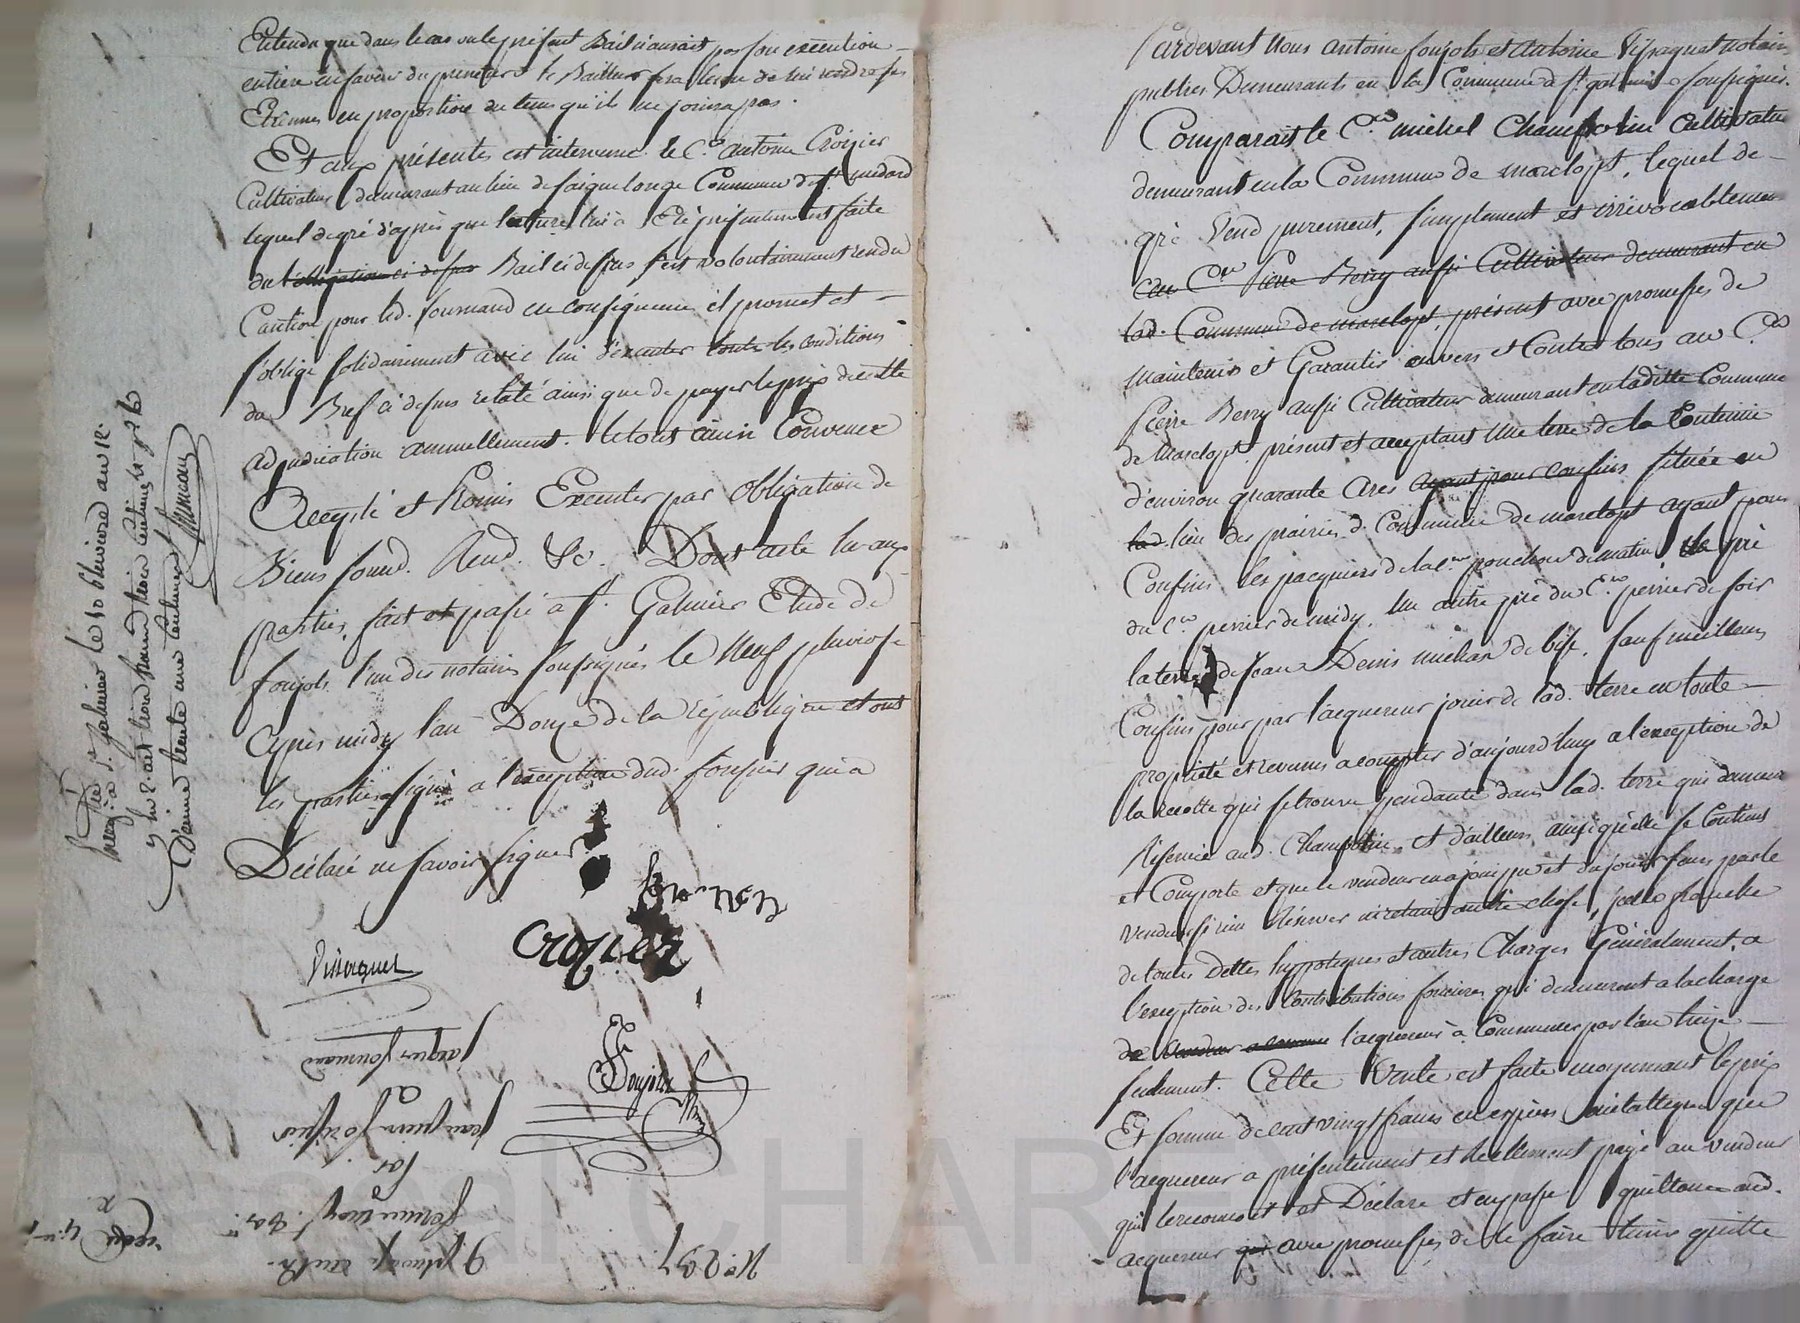 Entendu que dans le cas ou le présent Bail n'aurait pas son exécution
entiere en faveur du preneur le Bailleur sera tenu de lui rendre ses
Etrennes en proportion du tems qu'il ne jouira pas.
Et aux présentes est intervenu le C.en antoine Croizier
Cultivateur demeurant au lieu de faigue longe Commune de St. medard
lequel de gré d'après que lecture lui a Eté présentement faite
du l'obligation ci dessus Bail ci dessus s'est volontairement rendu
Caution pour led. fournand en conséquence il promet et
s'oblige solidairement avec lui d'éxecuter toutes les conditions
du Bref ci dessus relaté ainsi que de payer le prix de cette
adjudication annuellement. Le tout ainsi Convenu
Accepté et Promis Executer par obligation de
Biens soumd. Rend. &c. Dont acte lu aux
parties, fait et passé a St. Galmier Etude de
foujols l'un des notaires soussignés le Neuf pluviose
Après midy l'an Douze de la république et ont
les parties signé a l'exception dud. qui a
Déclaré ne savoir signer.
Croizier
Vissaguet
Foujols
jacques fournand
a
jean
par
ferme
9 pluviose an 12.
N.o 297
a St. galmier le 10 pluviose an 12.
Pardevant Nous antoine foujols et antoine Vissaguet notaires
publics Demeurants en la Commune de St. galmier soussignés.
Comparait le C.en michel Champolin Cultivateur
demeurant en la Commune de marclopt, lequel de
gré Vend purement, simplement et irrévocablement
au C.en Pierre Berry aussi Cultivateur demeurant en
lad. Commune de marclopt, présent avec promesses de
Maintenir et Garantir envers et Contre tous au C.en
Pierre Berry aussi Cultivateur demeurant en ladite Commune
de Marclopt, présent et acceptant Une terre de la Contenue
d'environ quarante Ares ayant pour confins située en
lad. lieu des prairies d. Commune de marclopt ayant pour
Confins les pacquiers de la c.ne ponchon de matin, le pré
du C.en perrier de midy, Un autre pré du C.en perrier de soir
la terre de Jean Denis michon de bise, sauf meilleurs
Confins, pour par l'acquereur jouir de lad. terre en toute
propriété et revenus a compter d'aujourd'huy a l'exception de
la recolte qui se trouve pendante dans lad. terre qui demeure
Réservée aud. Champolin, et d'ailleurs ainsi qu'elle se Contient
et Comporte et que le vendeur en a joui pu et du jouir sans par le
vendeur si rien Réserver ni retenir autre chose, icelle franche
de toutes Dettes hypoteques et autres Charges Généralement, a
l'exception des Contributions foncieres qui demeurent a la charge
de l'acquereur à Commencer par l'an treize
seulement. Cette Vente est faite moyennant le prix
Et somme de cent vingt francs en espèces métallique que
l'acquereur a présentement et Réellement payé au vendeur
qui le reconnoit et Déclare et en passe quittance aud.
acquereur qui avec promesses de le faire tenir quitte